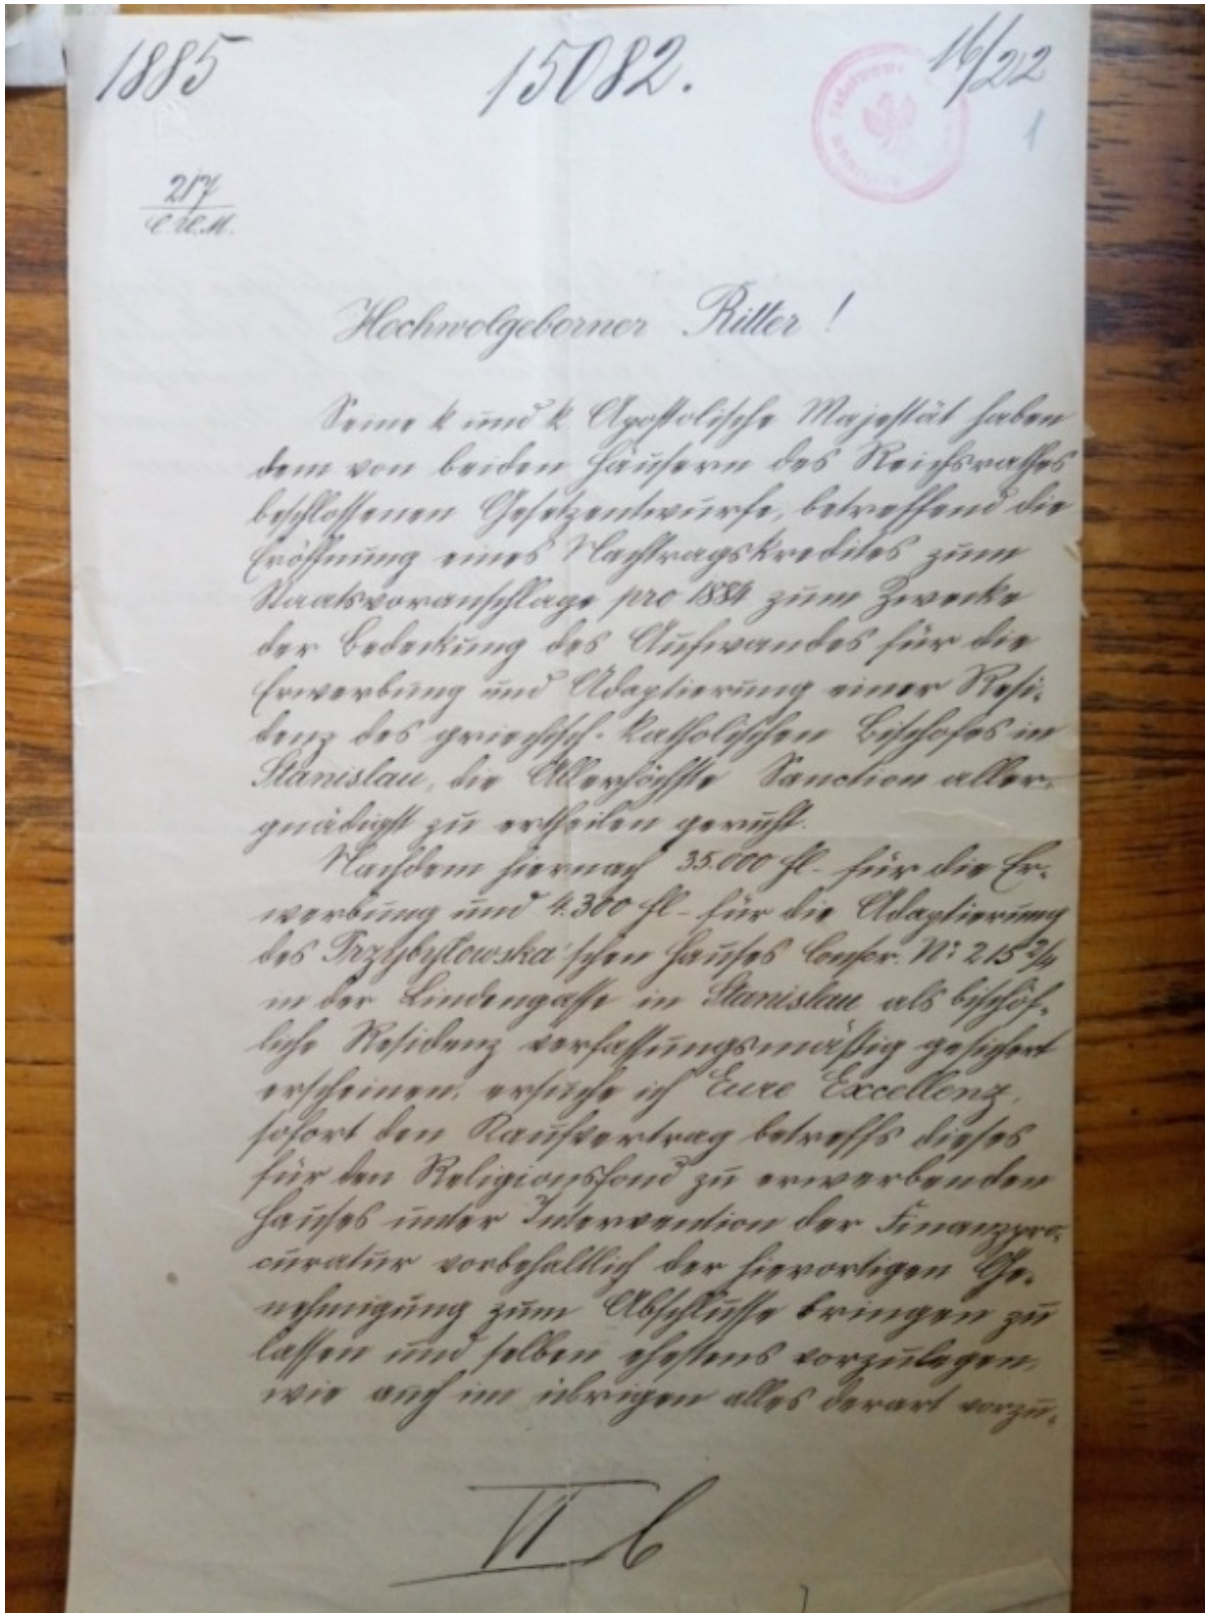 1885 15082. 16/22
1
217
C.U.M.
Hochwolgeborner Ritter!
Seine k und k Apostolische Majestät haben
dem von beiden Häusern des Reichsrathes
beschlossenen Gesetzentwurfe, betreffend die
Eröffnung eines Nachtragskredites zum
Staatsvoranschlage pro 1884 zum Zwecke
der Bedeckung des Aufwandes für die
Erwerbung und Adaptierung einer Resi-
denz des griechisch-katholischen Bischofes in
Stanislau, die Allerhöchste Sanction aller-
gnädigst zu ertheilen geruht.
Nachdem hiernach 35.000 fl – für die Er-
werbung und 4.300 fl – für die Adaptierung
des Przybyłowska'schen Hauses Conscr. No: 215 3/4
in der Lindengasse in Stanislau als bischöf-
liche Residenz verfassungsmässig gesichert
erscheinen, ersuche ich Eure Excellenz,
sofort den Kaufvertrag betreffs dieses
für den Religionsfond zu erwerbenden
Hauses unter Intervention der Finanzpro-
curatur vorbehaltlich der hierortigen Ge-
nehmigung zum Abschlusse bringen zu
lassen und selben ehestens vorzulegen,
wie auch im übrigen alles derart vorzu-
VI b